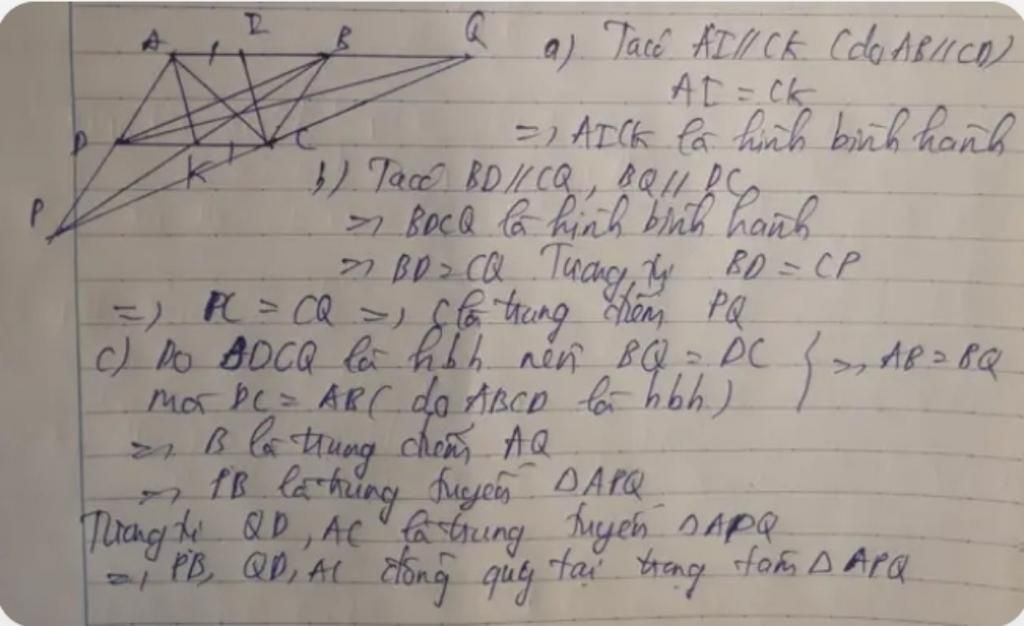 A I B Q
D K C
P
a) Ta có AI // CK (do AB // CD)
AI = CK
=> AICK là hình bình hành
b) Ta có BD // CQ, BQ // DC
=> BDCQ là hình bình hành
=> BD = CQ Tương tự BD = CP
=> PC = CQ => C là trung điểm PQ
c) Do BDCQ là hbh nên BQ = DC } => AB = BQ
mà DC = AB ( do ABCD là hbh )
=> B là trung điểm AQ
=> PB là trung tuyến Δ APQ
Tương tự QD, AC là trung tuyến Δ APQ
=> PB, QD, AC đồng quy tại trọng tâm Δ APQ